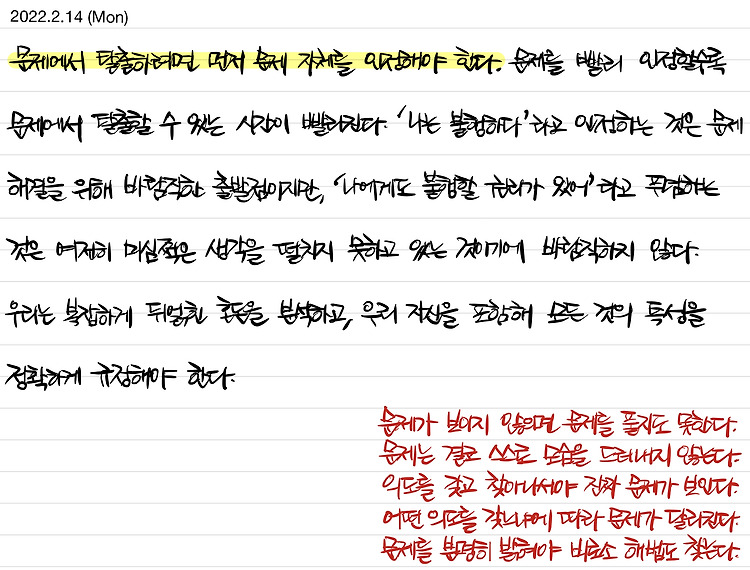 2022.2.14 (Mon)
문제에서 탈출하려면 먼저 문제 자체를 인정해야 한다. 문제를 빨리 인정할수록
문제에서 탈출할 수 있는 시간이 빨라진다. '나는 불행하다'라고 인정하는 것은 문제
해결을 위해 바람직한 출발점이지만, '나에게도 불행할 권리가 있어'라고 푸념하는
것은 여전히 미심쩍은 생각을 떨치지 못하고 있는 것이기에 바람직하지 않다.
우리는 복잡하게 뒤얽힌 혼돈을 분석하고, 우리 자신을 포함해 모든 것의 특성을
정확하게 규정해야 한다.
문제가 보이지 않으면 문제를 풀지도 못한다.
문제는 결코 스스로 모습을 드러내지 않는다.
의도를 갖고 찾아나서야 진짜 문제가 보인다.
어떤 의도를 갖느냐에 따라 문제가 달라진다.
문제를 분명히 밝혀야 비로소 해법도 찾는다.